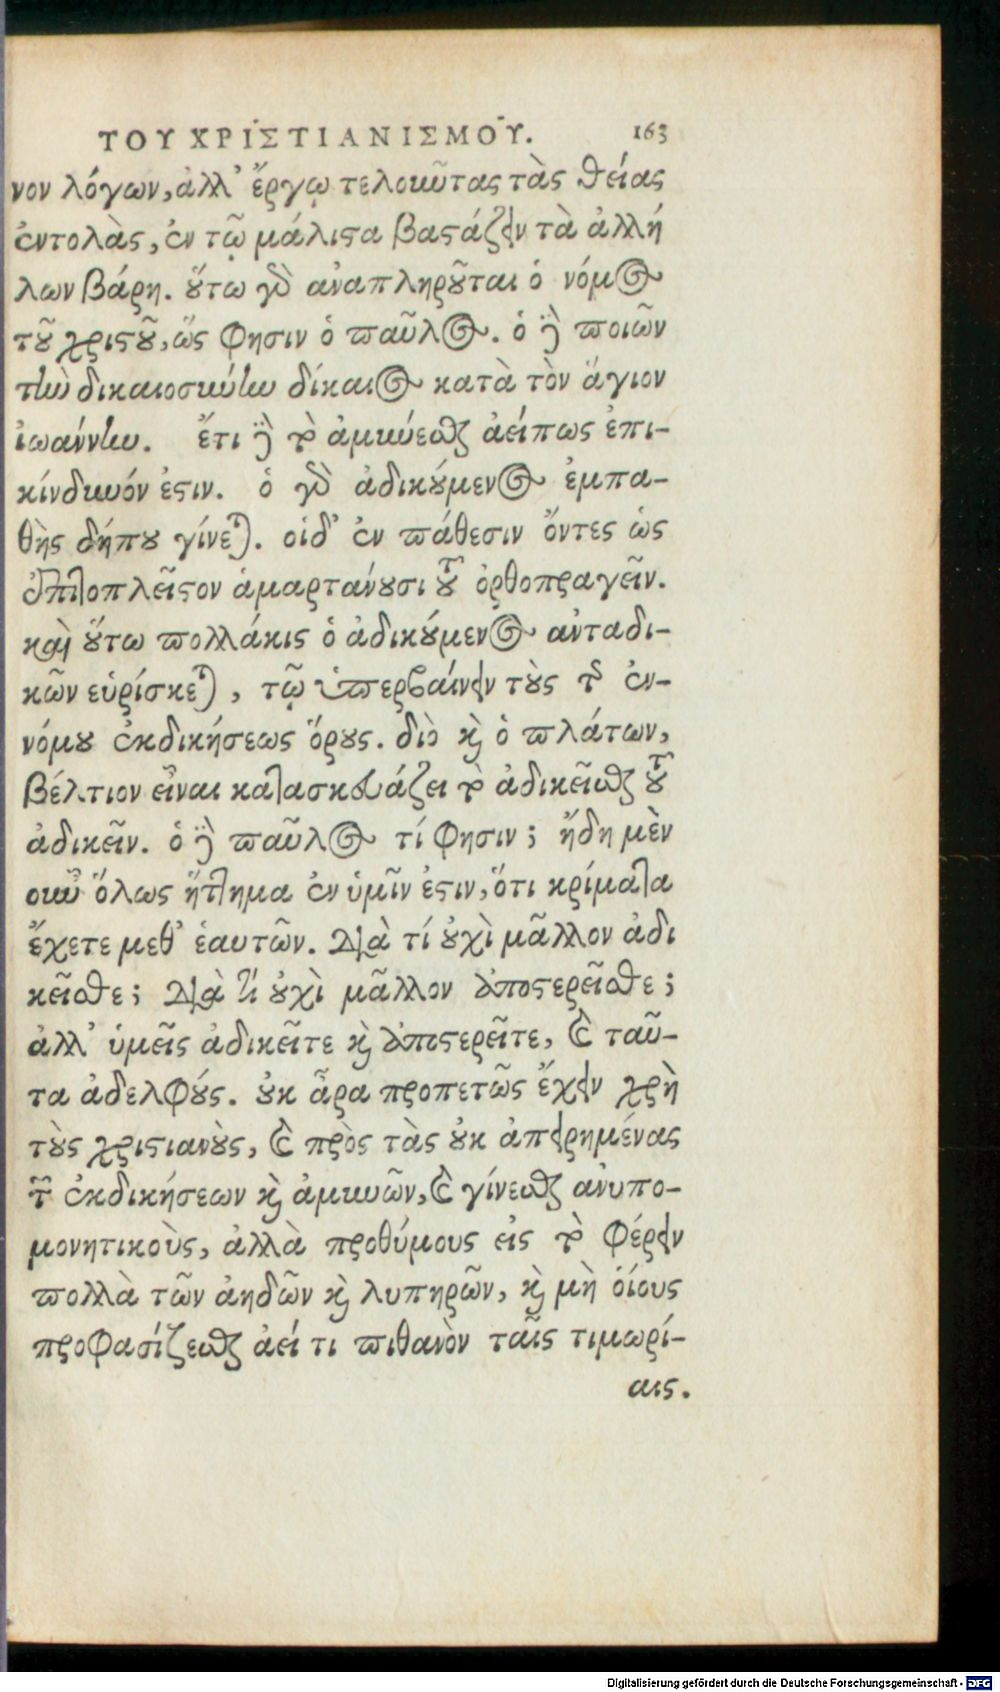 ΤΟΥ ΧΡΙΣΤΙΑΝΙΣΜΟΥ. 163
νον λόγων, ἀλλ’ ἔργῳ τελοιοῦτας τὰς θείας
ἐντολὰς, ἐν τῷ μάλιστα βαστάζειν τὰ ἀλλή
λων βάρη. οὕτω γὰρ ἀναπληροῦται ὁ νόμος
τοῦ χριστοῦ, ὥς φησιν ὁ παῦλος. ὁ δὲ ποιῶν
τὴν δικαιοσύνην δίκαιος κατὰ τὸν ἅγιον
ἰωάννην. ἔτι δὲ τὸ ἀμύνεσθαι ἀείπως ἐπι-
κίνδυνόν ἐστιν. ὁ γὰρ ἀδικούμενος ἐμπα-
θὴς δήπου γίνεται. οἱ δ’ ἐν πάθεσιν ὄντες ὡς
ἐπιτοπλεῖστον ἁμαρτάνουσι τοῦ ὀρθοπραγεῖν.
καὶ οὕτω πολλάκις ὁ ἀδικούμενος ἀνταδι-
κῶν εὑρίσκεται, τῷ ὑπερβαίνειν τοὺς τῆς ἐν-
νόμου ἐκδικήσεως ὅρους. διὸ καὶ ὁ πλάτων,
βέλτιον εἶναι κατασκευάζει τὸ ἀδικεῖσθαι τοῦ
ἀδικεῖν. ὁ δὲ παῦλος τί φησιν; ἤδη μὲν
οὖν ὅλως ἥττημα ἐν ὑμῖν ἐστιν, ὅτι κρίματα
ἔχετε μεθ’ ἑαυτῶν. διὰ τί οὐχὶ μᾶλλον ἀδι
κεῖσθε; διὰ τί οὐχὶ μᾶλλον ἀποστερεῖσθε;
ἀλλ’ ὑμεῖς ἀδικεῖτε καὶ ἀποστερεῖτε, καὶ ταῦ-
τα ἀδελφούς. οὐκ ἄρα προπετῶς ἔχειν χρὴ
τοὺς χριστιανοὺς, καὶ πρὸς τὰς οὐκ ἀπειρημένας
τῶν ἐκδικήσεων καὶ ἀμυνῶν, καὶ γίνεσθαι ἀνυπο-
μονητικοὺς, ἀλλὰ προθύμους εἰς τὸ φέρειν
πολλὰ τῶν ἀηδῶν καὶ λυπηρῶν, καὶ μὴ οἵους
προφασίζεσθαι ἀεί τι πιθανὸν ταῖς τιμωρί-
αις.
Digitalisierung gefördert durch die Deutsche Forschungsgemeinschaft - DFG